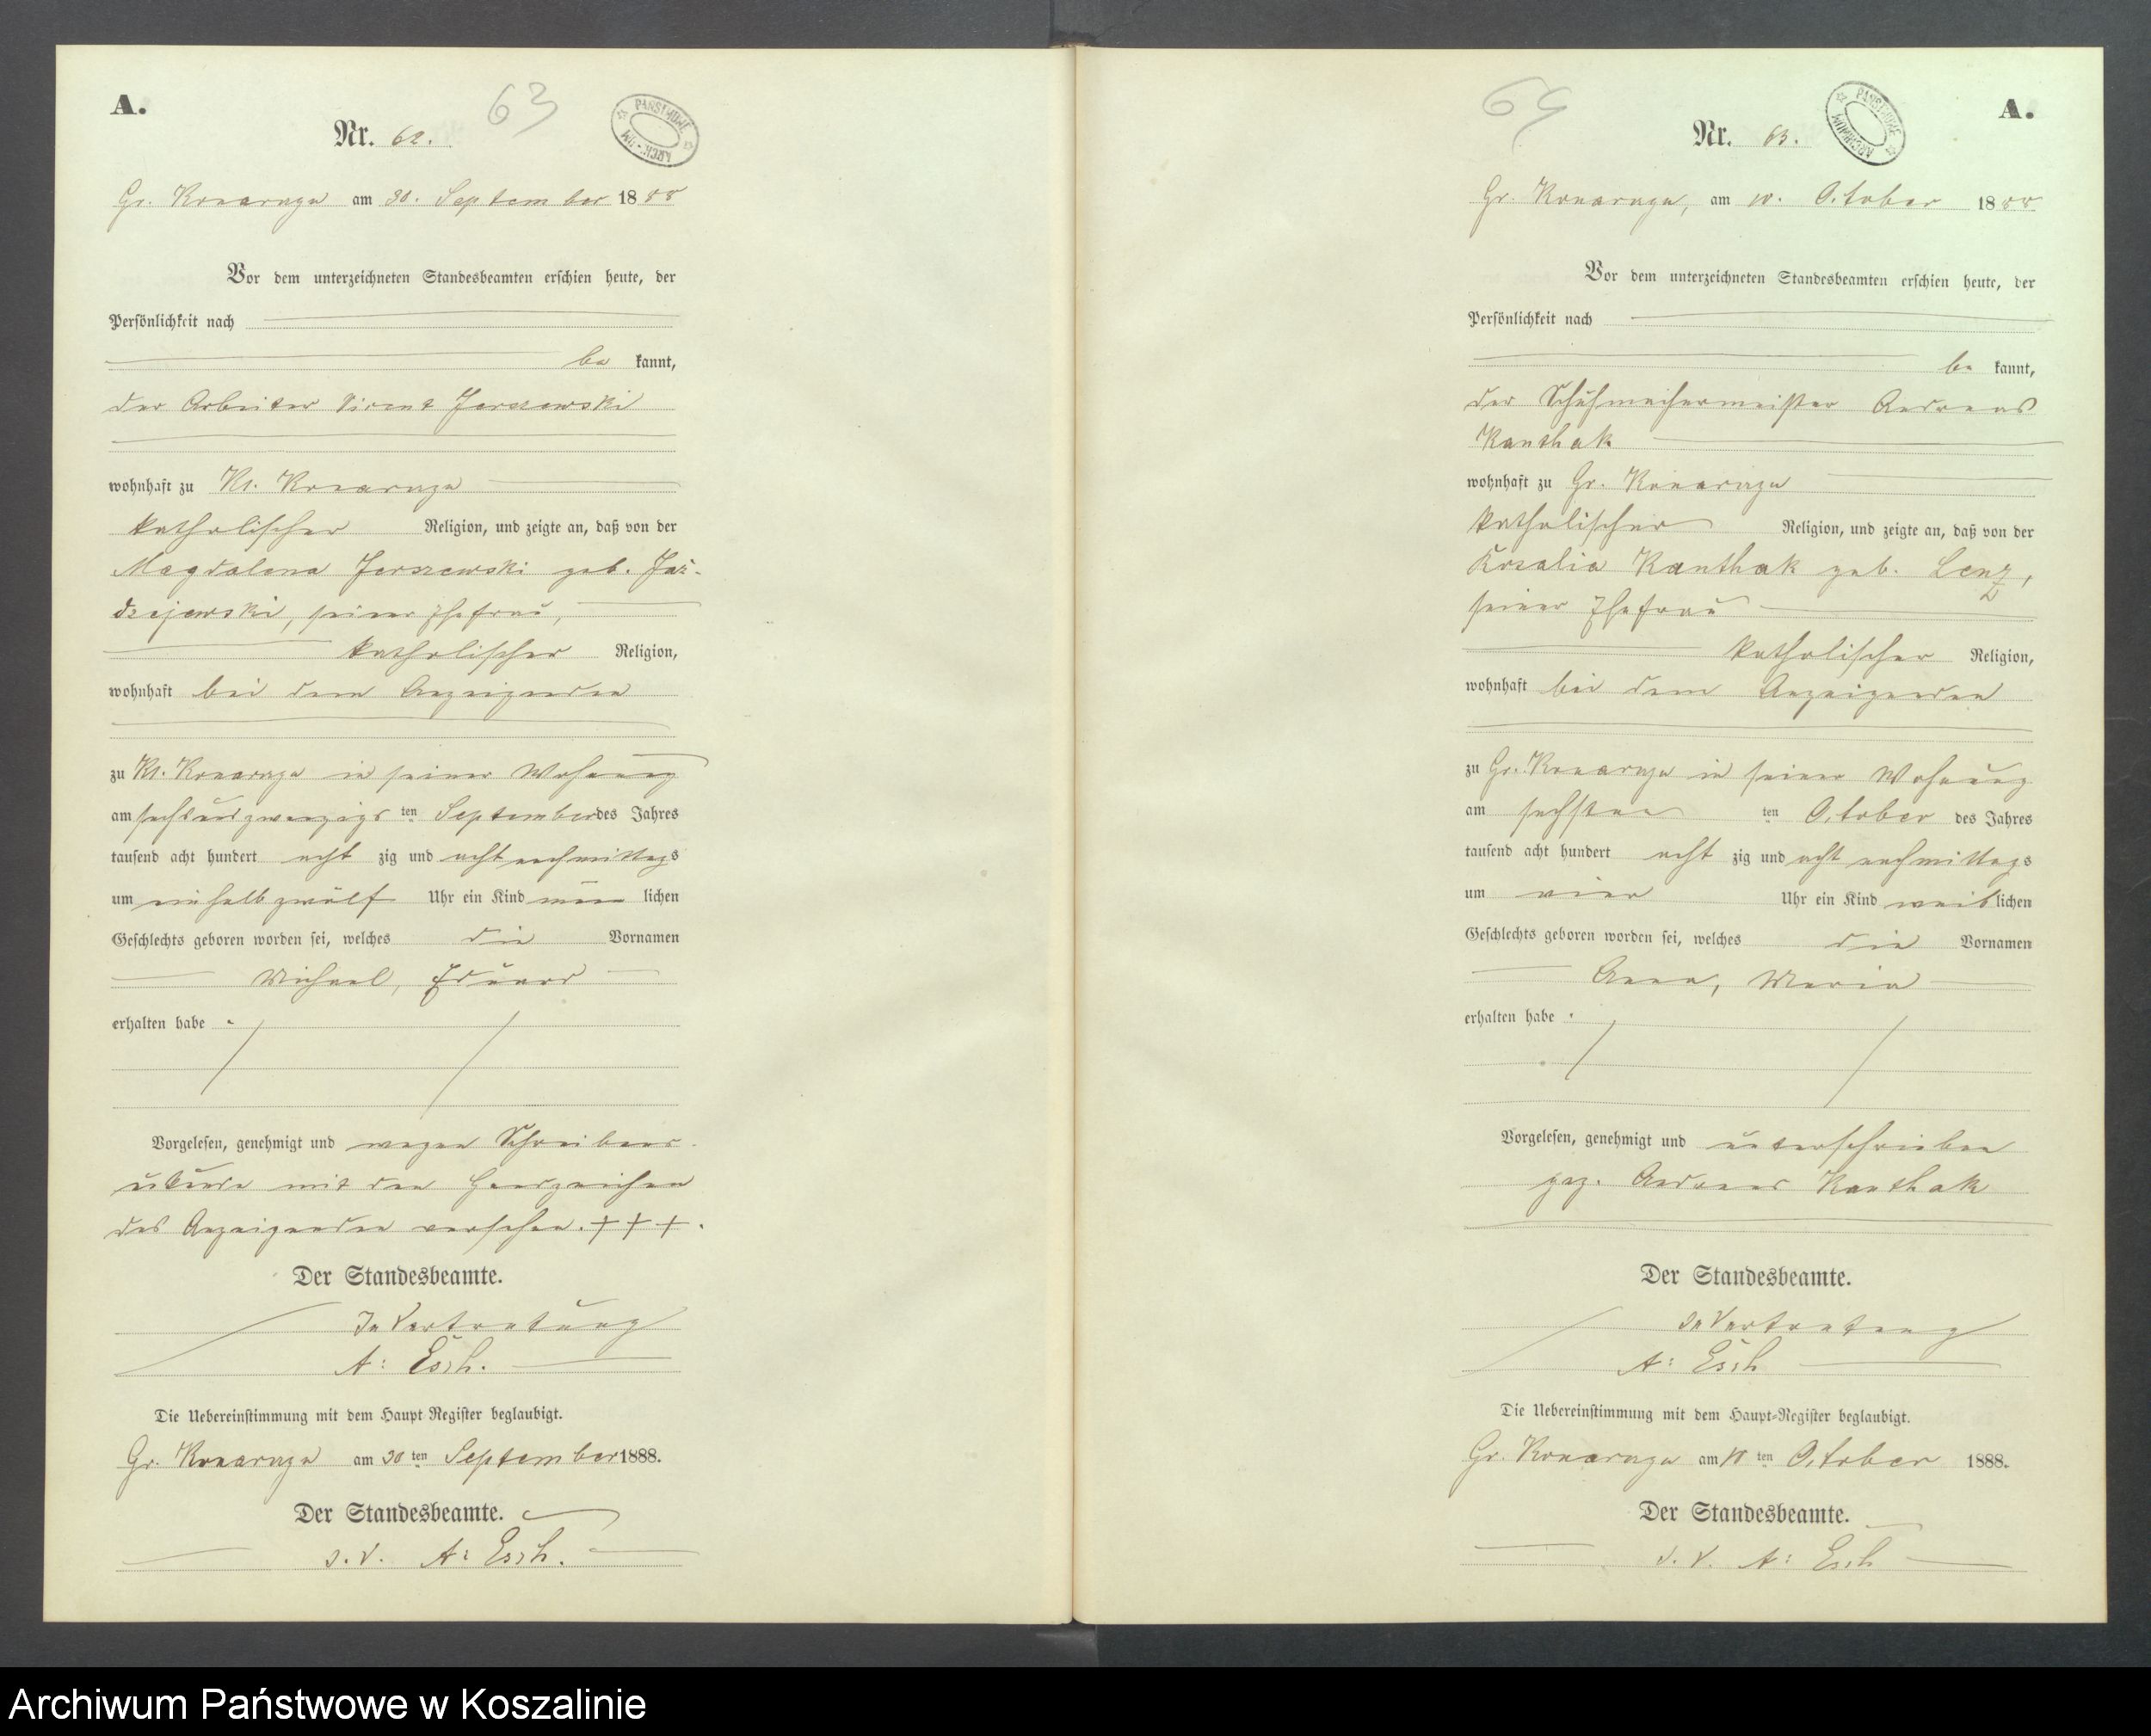 A.
63
PAŃSTWOWE ARCHIWUM
Nr. 62.
Gr. Konarzyn am 30. September 1888
Vor dem unterzeichneten Standesbeamten erschien heute, der
Persönlichkeit nach
be kannt,
der Arbeiter Vincent Jerszewski
wohnhaft zu Kl. Konarzyn
katholischer Religion, und zeigte an, daß von der
Magdalena Jerszewski geb. Jaz-
dzejewski, seiner Ehefrau,
katholischer Religion,
wohnhaft bei dem Anzeigenden
zu Kl. Konarzyn in seiner Wohnung
am sechsundzwanzigs ten September des Jahres
tausend acht hundert acht zig und acht nachmittags
um einhalb zwölf Uhr ein Kind män lichen
Geschlechts geboren worden sei, welches die Vornamen
Michael, Eduard
erhalten habe.
Vorgelesen, genehmigt und wegen Schreibens-
unkunde mit den Handzeichen
des Anzeigenden versehen. + + + .
Der Standesbeamte.
In Vertretung
A: Esch.
Die Uebereinstimmung mit dem Haupt Register beglaubigt.
Gr. Konarzyn am 30 ten September 1888.
Der Standesbeamte.
I. V. A: Esch.
64
PAŃSTWOWE ARCHIWUM
A.
Nr. 63.
Gr. Konarzyn, am 10. October 1888
Vor dem unterzeichneten Standesbeamten erschien heute, der
Persönlichkeit nach
be kannt,
der Schuhmachermeister Andreas
Kanthak
wohnhaft zu Gr. Konarzyn
katholischer Religion, und zeigte an, daß von der
Rosalia Kanthak geb. Lenz,
seiner Ehefrau
katholischer Religion,
wohnhaft bei dem Anzeigenden
zu Gr. Konarzyn in seiner Wohnung
am sechsten ten October des Jahres
tausend acht hundert acht zig und acht nachmittags
um vier Uhr ein Kind weib lichen
Geschlechts geboren worden sei, welches die Vornamen
Anna, Maria
erhalten habe.
Vorgelesen, genehmigt und unterschrieben
gez. Andreas Kanthak
Der Standesbeamte.
In Vertretung
A: Esch
Die Uebereinstimmung mit dem Haupt-Register beglaubigt.
Gr. Konarzyn am 10 ten October 1888.
Der Standesbeamte.
I. V. A: Esch
Archiwum Państwowe w Koszalinie